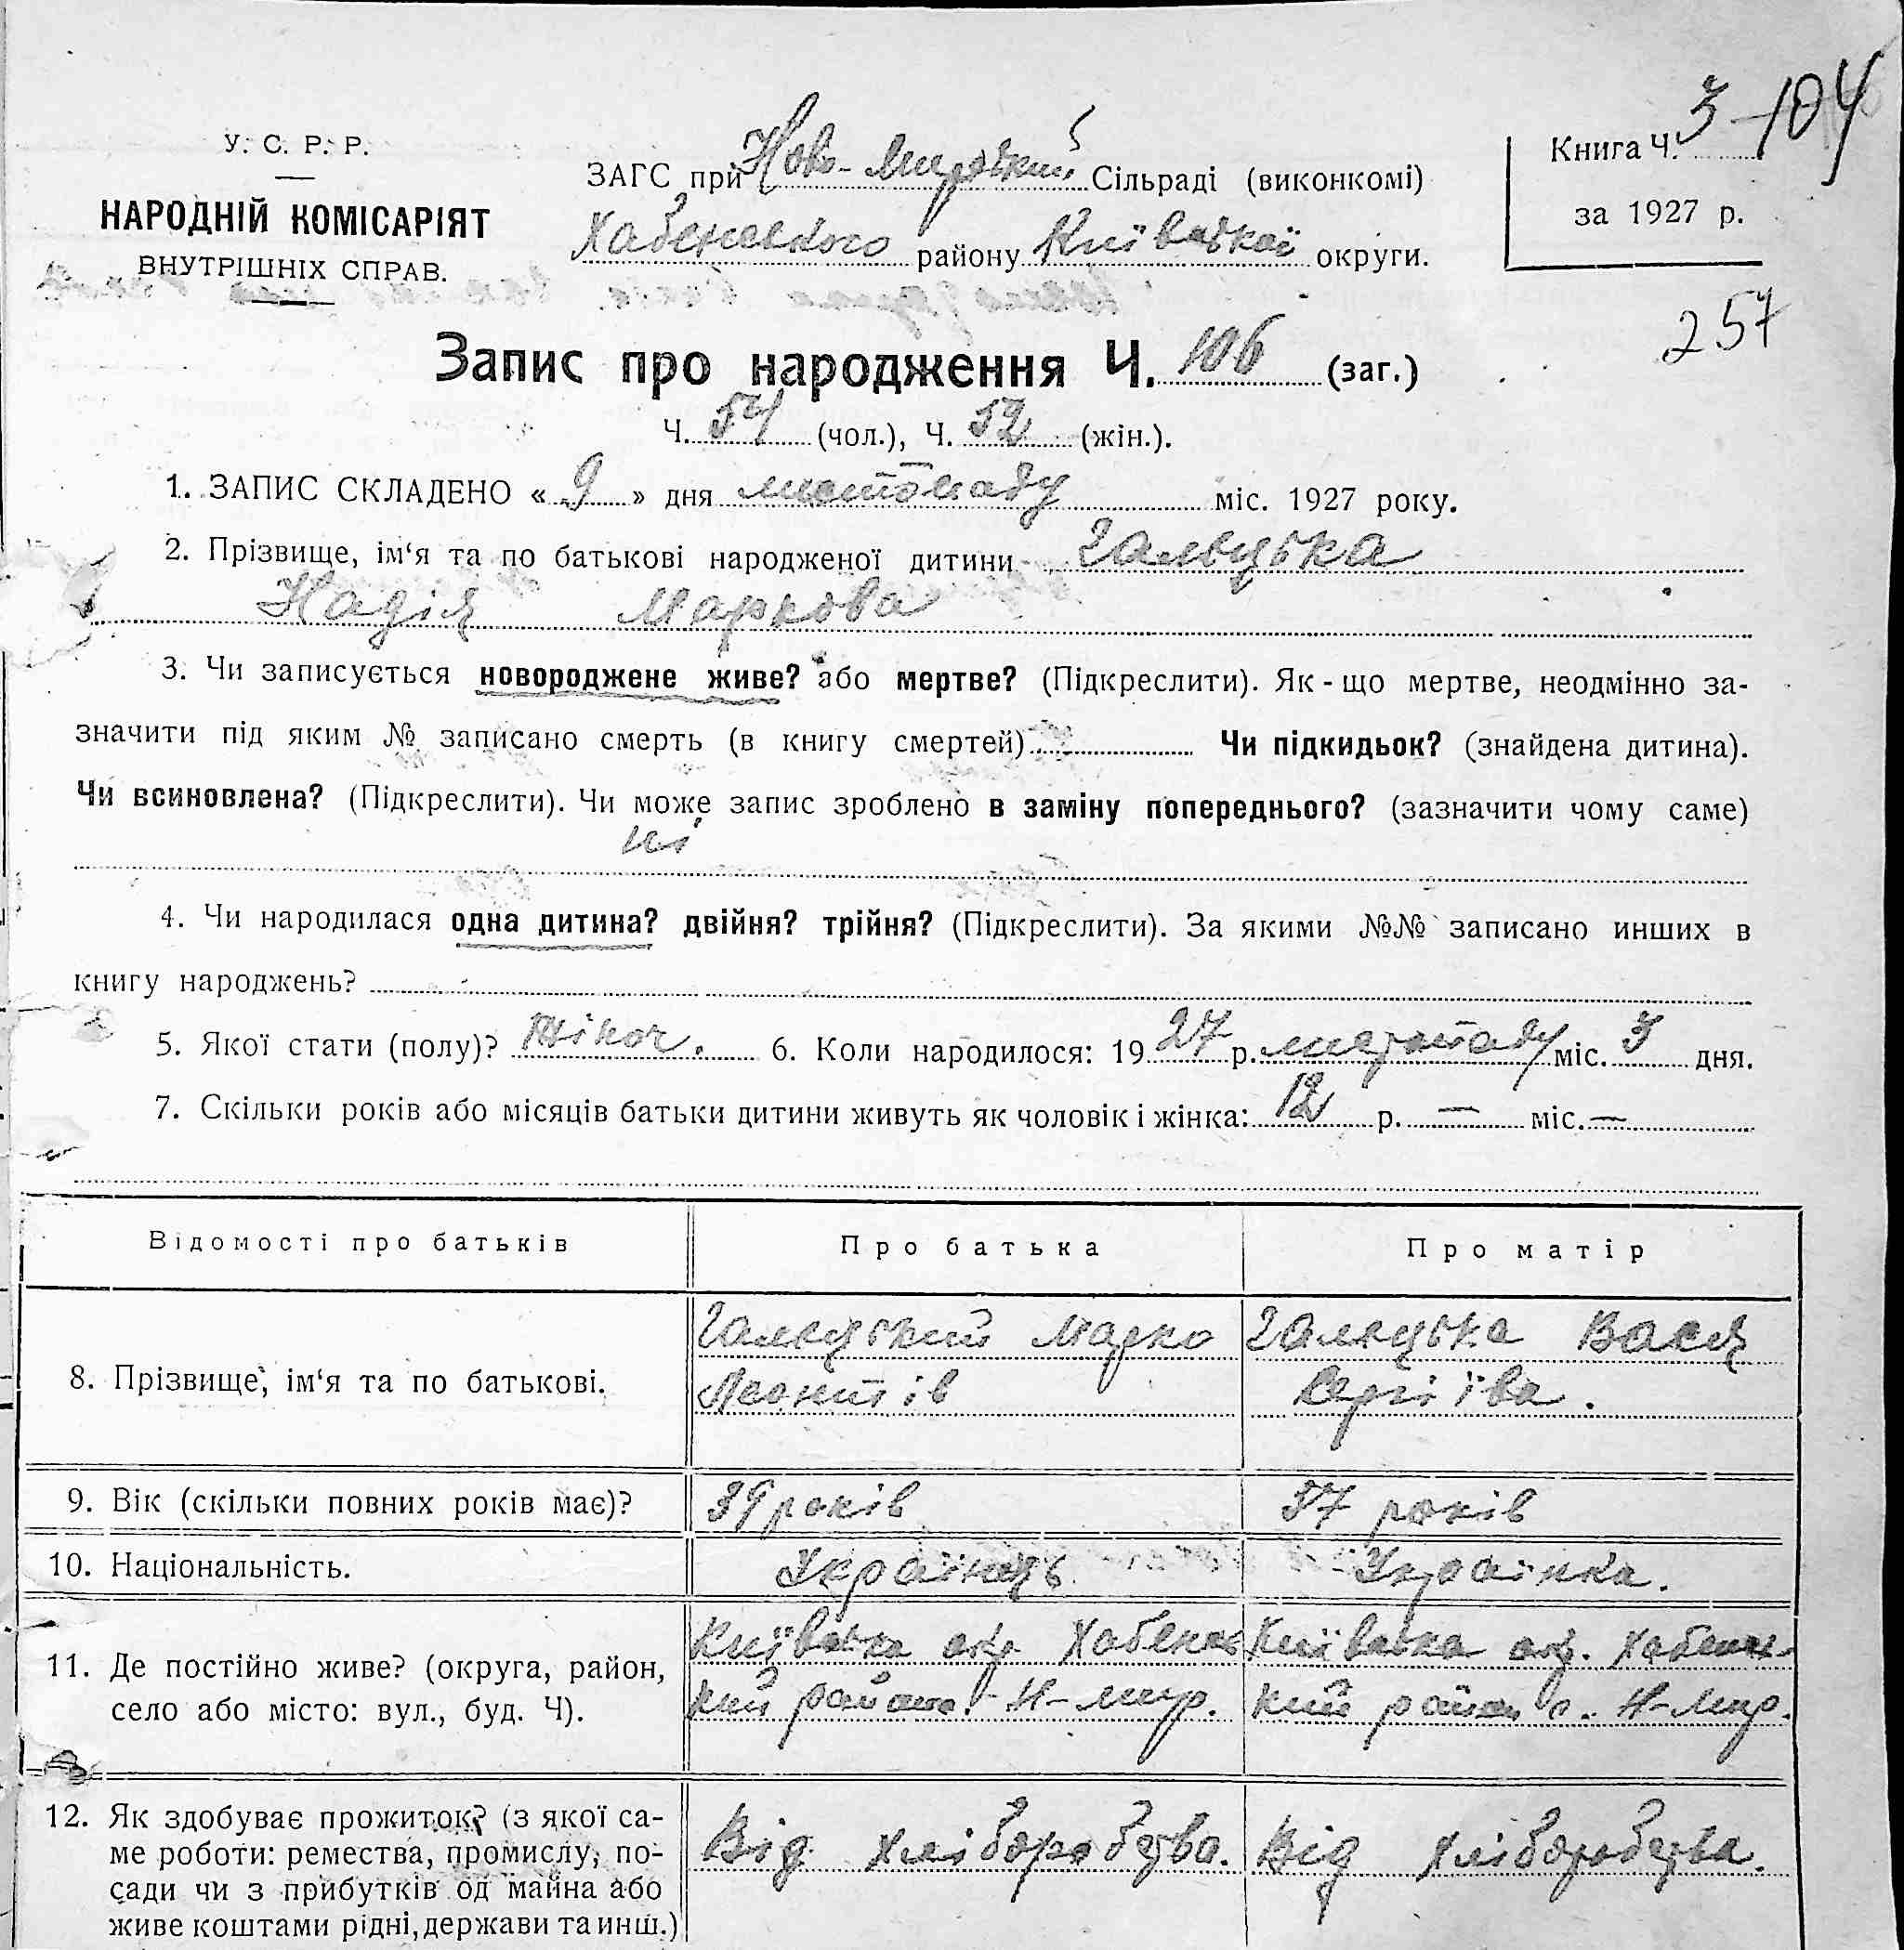 У. С. Р. Р.
НАРОДНІЙ КОМІСАРІЯТ
ВНУТРІШНІХ СПРАВ.
ЗАГС при Ново-Мирський Сільраді (виконкомі)
Хабенського району Київської округи.
Книга Ч. 3 - 104
за 1927 р.
257
Запис про народження Ч. 106 (заг.)
Ч. 54 (чол.), Ч. 52 (жін.).
1. ЗАПИС СКЛАДЕНО « 9 » дня листопаду міс. 1927 року.
2. Прізвище, ім‘я та по батькові народженої дитини Гальцька
Надія Маркова
3. Чи записується новороджене живе? або мертве? (Підкреслити). Як-що мертве, неодмінно за-
значити під яким № записано смерть (в книгу смертей) Чи підкидьок? (знайдена дитина).
Чи всиновлена? (Підкреслити). Чи може запис зроблено в заміну попереднього? (зазначити чому саме)
ні
4. Чи народилася одна дитина? двійня? трійня? (Підкреслити). За якими №№ записано инших в
книгу народжень?
5. Якої стати (полу)? Жіноч. 6. Коли народилося: 1927 р. листопаду міс. 3 дня.
7. Скільки років або місяців батьки дитини живуть як чоловік і жінка: 12 р. — міс. —
Відомості про батьків
Про батька
Про матір
8. Прізвище, ім‘я та по батькові.
Гальцький Марко
Леонтів
Гальцька Вася
Сергіїва.
9. Вік (скільки повних років має)?
39 років
37 років
10. Національність.
Українець
Українка.
11. Де постійно живе? (округа, район,
село або місто: вул., буд. Ч).
Київська окр. Хабенсь
кий район. Н-Мир.
Київська окр. Хабенсь-
кий район с. Н-Мир.
12. Як здобуває прожиток? (з якої са-
ме роботи: ремества, промислу, по-
сади чи з прибутків од майна або
живе коштами рідні, держави та инш.)
Від хліборобства.
Від хліборобства.